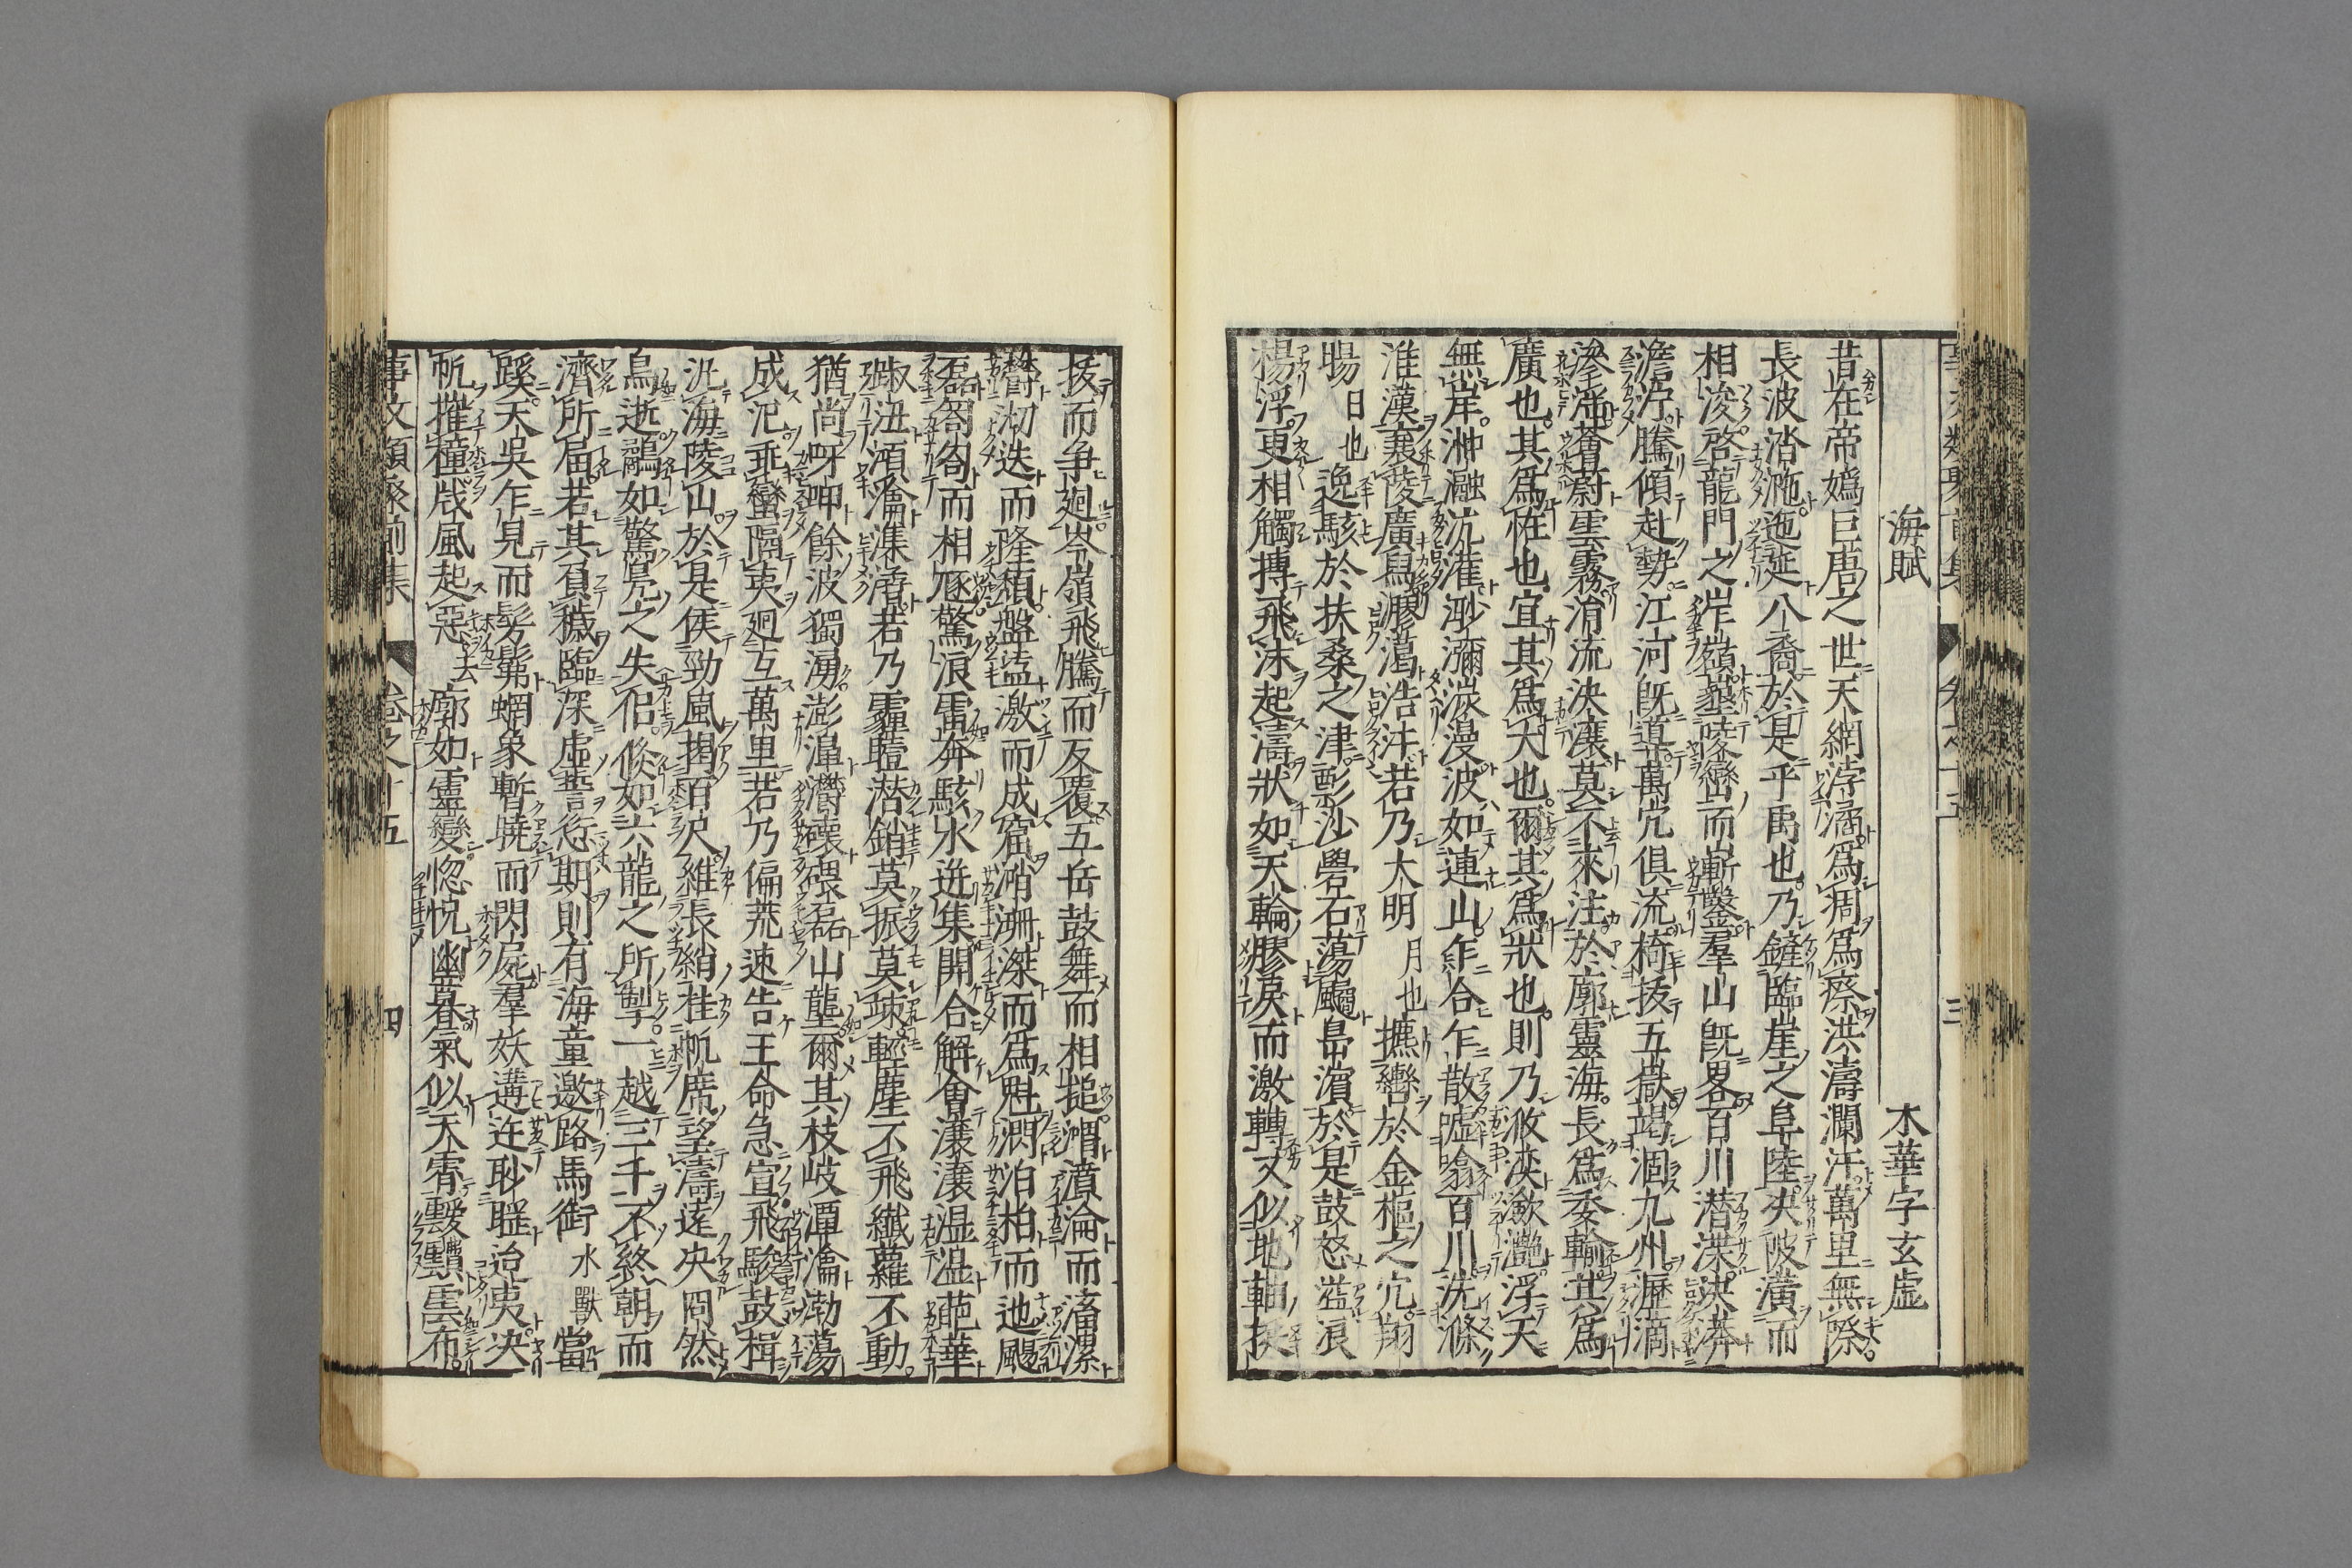 海賦
木華字玄虛
昔在帝媯巨唐之世天綱浡潏為凋為瘵洪濤瀾汗萬里無際
長波涾㴃迤涎八裔於是乎禹也乃鏟臨崖之阜陸決陂潢而
相浚啓龍門之岝嶺墾陵巒而嶄鑿羣山既畧百川潛渫泱漭
澹泞騰傾赴勢江河既導萬穴俱流掎拔五嶽竭涸九州瀝滴
滲淫薈蔚雲霧涓流泱瀼莫不來注於廓靈海長為委輸其為
廣也其為恠也宜其為大也爾其為狀也則乃浟湙瀲灩浮天
無岸沖瀜沆瀁渺瀰湠漫波如連山乍合乍散噓噏百川洗滌
淮漢襄陵廣舄㶀㵧浩汗若乃大明月也摭轡於金樞之穴翔
暘日也逸駭於扶桑之津彯沙礐石蕩颺島濵於是鼓怒溢浪
揚浮更相觸搏飛沫起濤狀如天輪膠戾而激轉又似地軸挺
拔而争廻岑嶺飛騰而反覆五岳鼓舞而相搥㵋濆淪而滀漯
鬱沏迭而隆頹盤盓激而成窟㴽𣶏滐而為魁㵎泊柏而迆颺
磊匒匌而相豗驚浪雷奔駭水迸集開合解會瀼瀼湿湿葩華
踧沑澒濘潗㵫若乃霾曀潛銷莫振莫竦輕塵不飛纖蘿不動
猶尚呀呷餘波獨湧澎濞灪𥗬磈磊山壟爾其枝岐潭瀹渤蕩
成汜乖蠻隔夷廻互萬里若乃偏荒速告王命急宣飛駿鼓楫
汎海陵山於是候勁風揭百尺維長綃桂帆席望濤遠决冏然
鳥逝鷸如驚鳧之失侶倐如六龍之所掣一越三千不終朝而
濟所届若其負穢臨深虛誓愆期則有海童邀路馬銜水獸當
蹊天吳乍見而髣髴蝄象暫曉而閃屍羣妖遘迕眇䁘冶夷决
帆摧橦戕風起惡去廓如靈變惚怳幽暮氣似天霄靉靅雲布
事文類聚前集
卷之十五
四